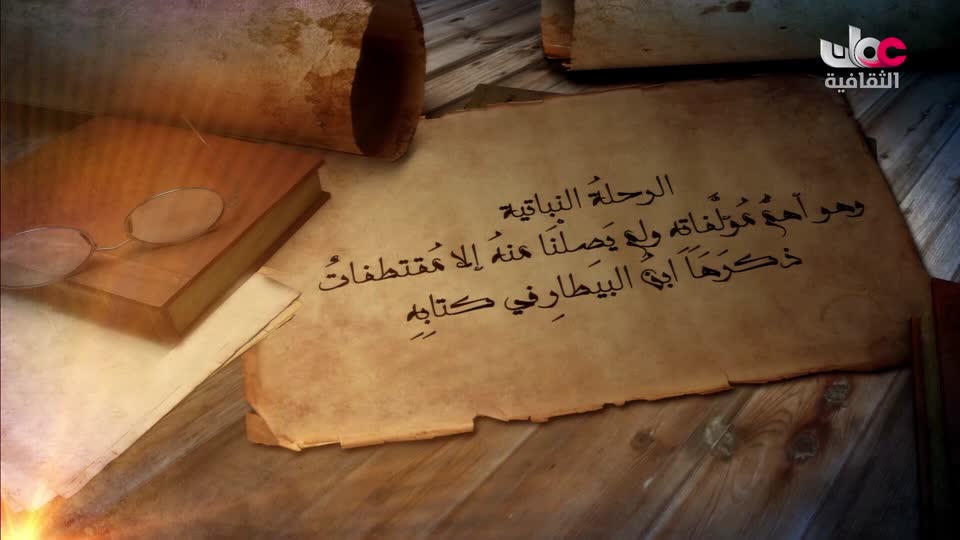 عمان
الثقافية
الرحلةُ النباتية
وهو أهمُّ مُؤلَّفاته ولم يَصِلْنَا منهُ إلا مُقتطفاتٌ
ذكَرَهَا ابنُ البيَطارِ في كتابِهِ